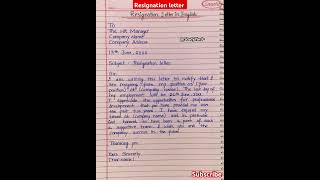 Resignation letter
Resignation Letter In English
To
The HR Manager
Company Name
Company Address
13th June,
Subject : Resignation letter
Sir,
I am writing this letter to notify that I
am resigning from my position as (your
position) at (company name). The last day of
my employment will be 26th June,
I appreciate the opportunities for professional
development that you have provided me over
the past two years. I have enjoyed my
tenure at (company name) and in particular
feel honored to have been a part of such
a supportive team. I wish you and the
company success in the future.
Thanking you.
Yours Sincerely
(Your name)
Subscribe